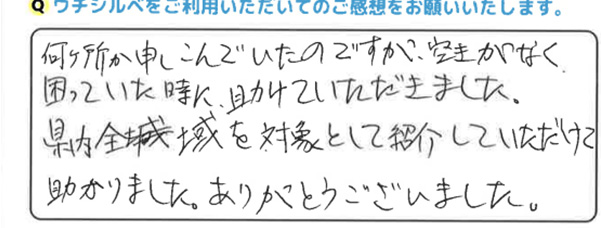 Q ウチシルベをご利用いただいてのご感想をお願いいたします。
何ヶ所か申しこんでいたのですが、空きがなく
困っていた時に、助けていただきました。
県内全域を対象として紹介していただけて
助かりました。ありがとうございました。